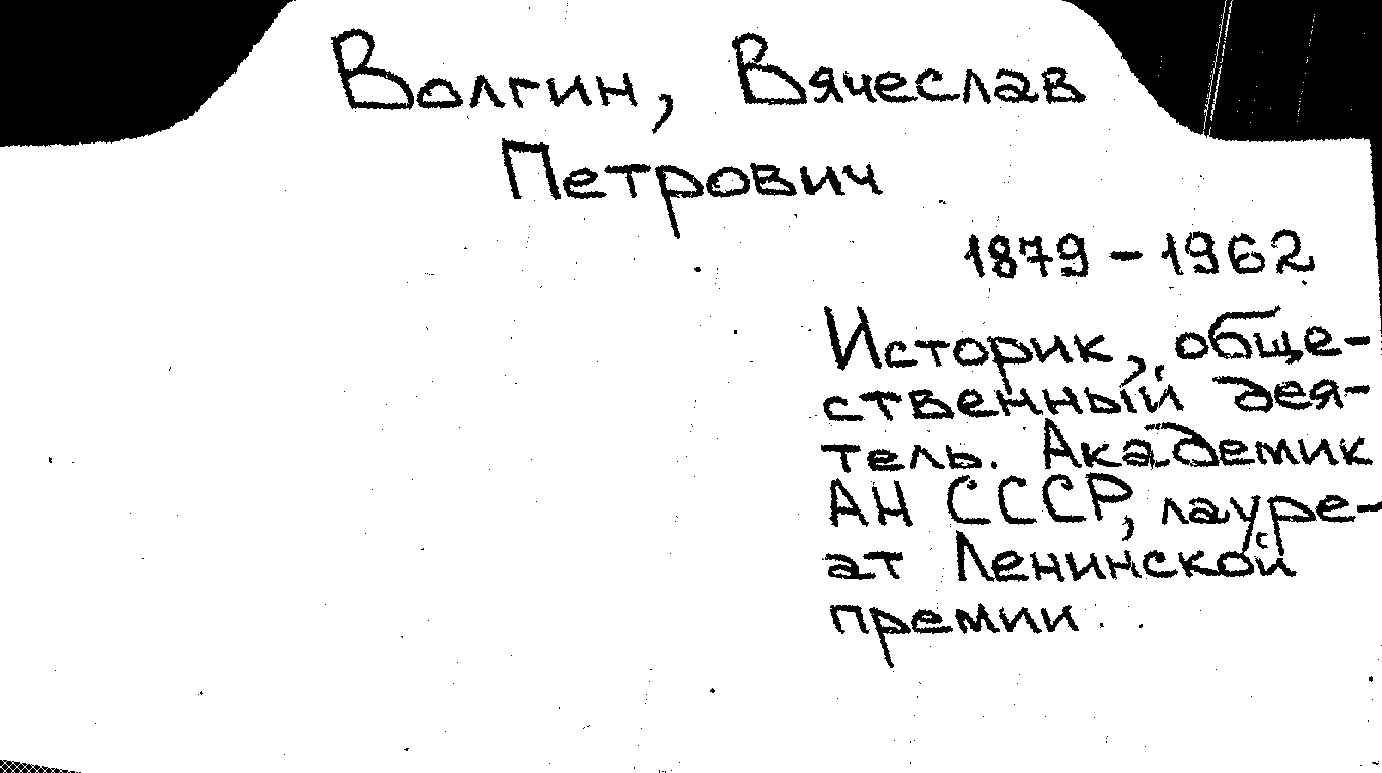 Волгин, Вячеслав
Петрович
1879 - 1962
Историк, обще-
ственный дея-
тель. Академик
АН СССР, лауре-
ат Ленинской
премии.